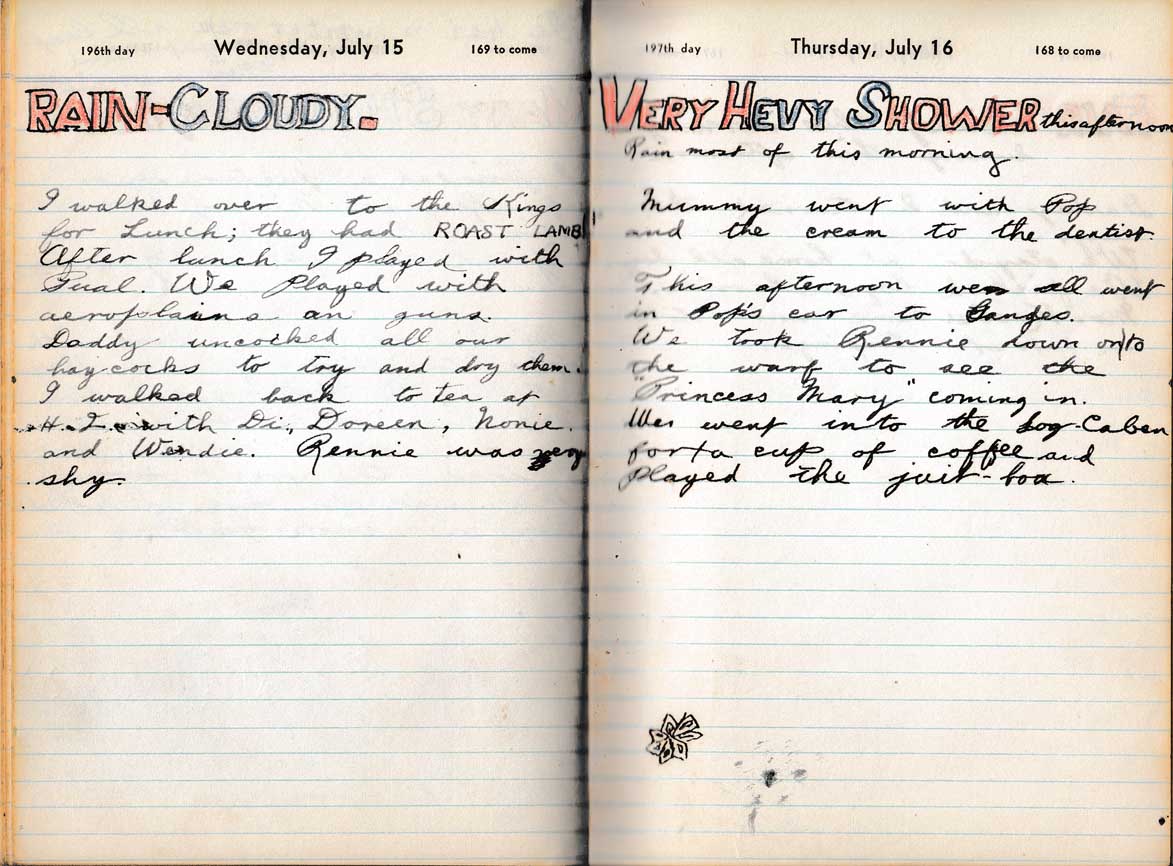 196th day Wednesday, July 15 169 to come
RAIN-CLOUDY.
I walked over to the Kings
for Lunch; they had ROAST LAMB
After lunch I played with
We Played with
aeroplains an guns.
Daddy uncocked all our
haycocks to try and dry them.
I walked back to tea at
with Di., Doreen, Nonie.
and Wendie. Rennie was very
shy.
197th day Thursday, July 16 168 to come
VERY HEVY SHOWER this afternoon
Rain most of this morning.
Mummy went with Pop
and the cream to the dentist.
This afternoon we all went
in Pop's car to Ganges.
We took Rennie down onto
the warf to see the
"Princess Mary" coming in.
We went into the Log-Caben
for a cup of coffee and
Played the juit-box.